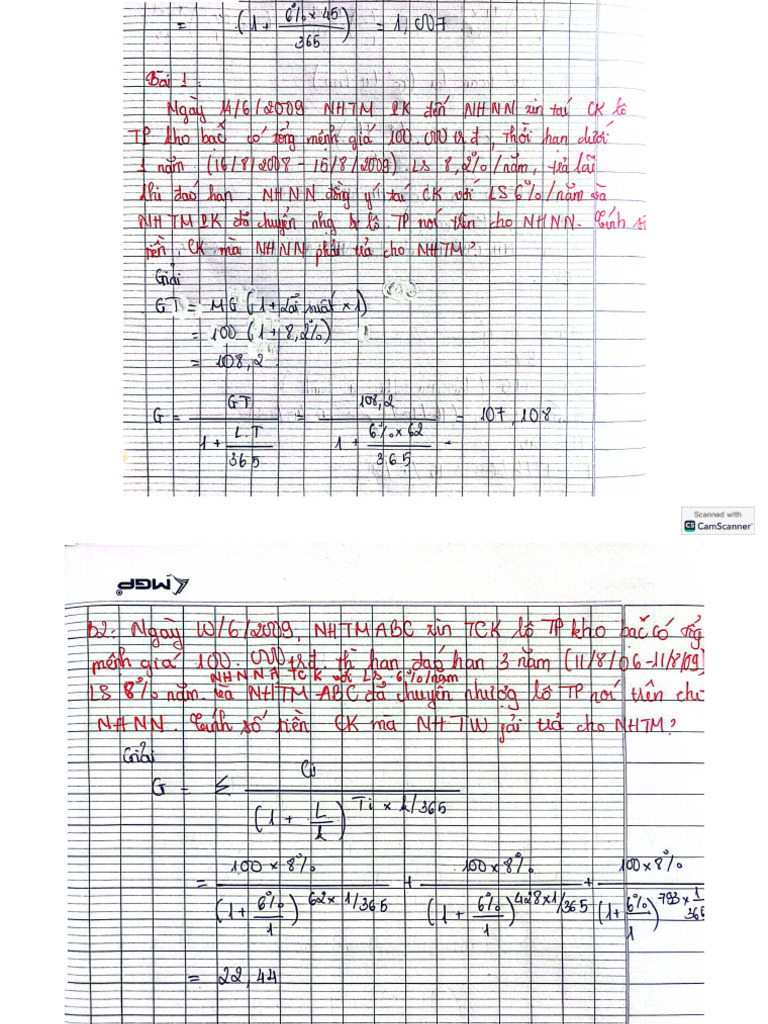 = (1 + 6% x 45 / 365) = 1,007
Bài 1:
Ngày 14/6/2009 NHTM 2K đến NHNN xin tái CK lô
TP kho bạc có tổng mệnh giá 100.000 trđ, thời hạn dưới
1 năm (16/8/2008 - 15/8/2009). LS 8,2%/năm, trả lãi
khi đáo hạn. NHNN đồng ý tái CK với LS 6%/năm và
NHTM 2K đã chuyển nhg lô TP nói trên cho NHNN. Tính số
tiền CK mà NHNN phải trả cho NHTM?
Giải
GT = MG (1 + Lãi suất x 1)
= 100 (1 + 8,2%)
= 108,2
G = GT / (1 + L.T / 365) = 108,2 / (1 + 6% x 62 / 365) = 107,108
Scanned with
CS CamScanner
MGP
b2: Ngày 10/6/2009, NHTM ABC xin TCK lô TP kho bạc có tổng
mệnh giá 100.000 trđ. th hạn đáo hạn 3 năm (11/8/06-11/8/09)
NHNN TCK với LS 6%/năm
LS 8% năm và NHTM ABC đã chuyển nhượng lô TP nói trên cho
NHNN. Tính số tiền CK mà NHTW fải trả cho NHTM?
Giải
G = Σ Ci / (1 + L/k)^(Ti x k/365)
= 100 x 8% / (1 + 6%/1)^(62 x 1/365) + 100 x 8% / (1 + 6%/1)^(428 x 1/365) + 100 x 8% / (1 + 6%/1)^(793 x 1/365)
= 22,44